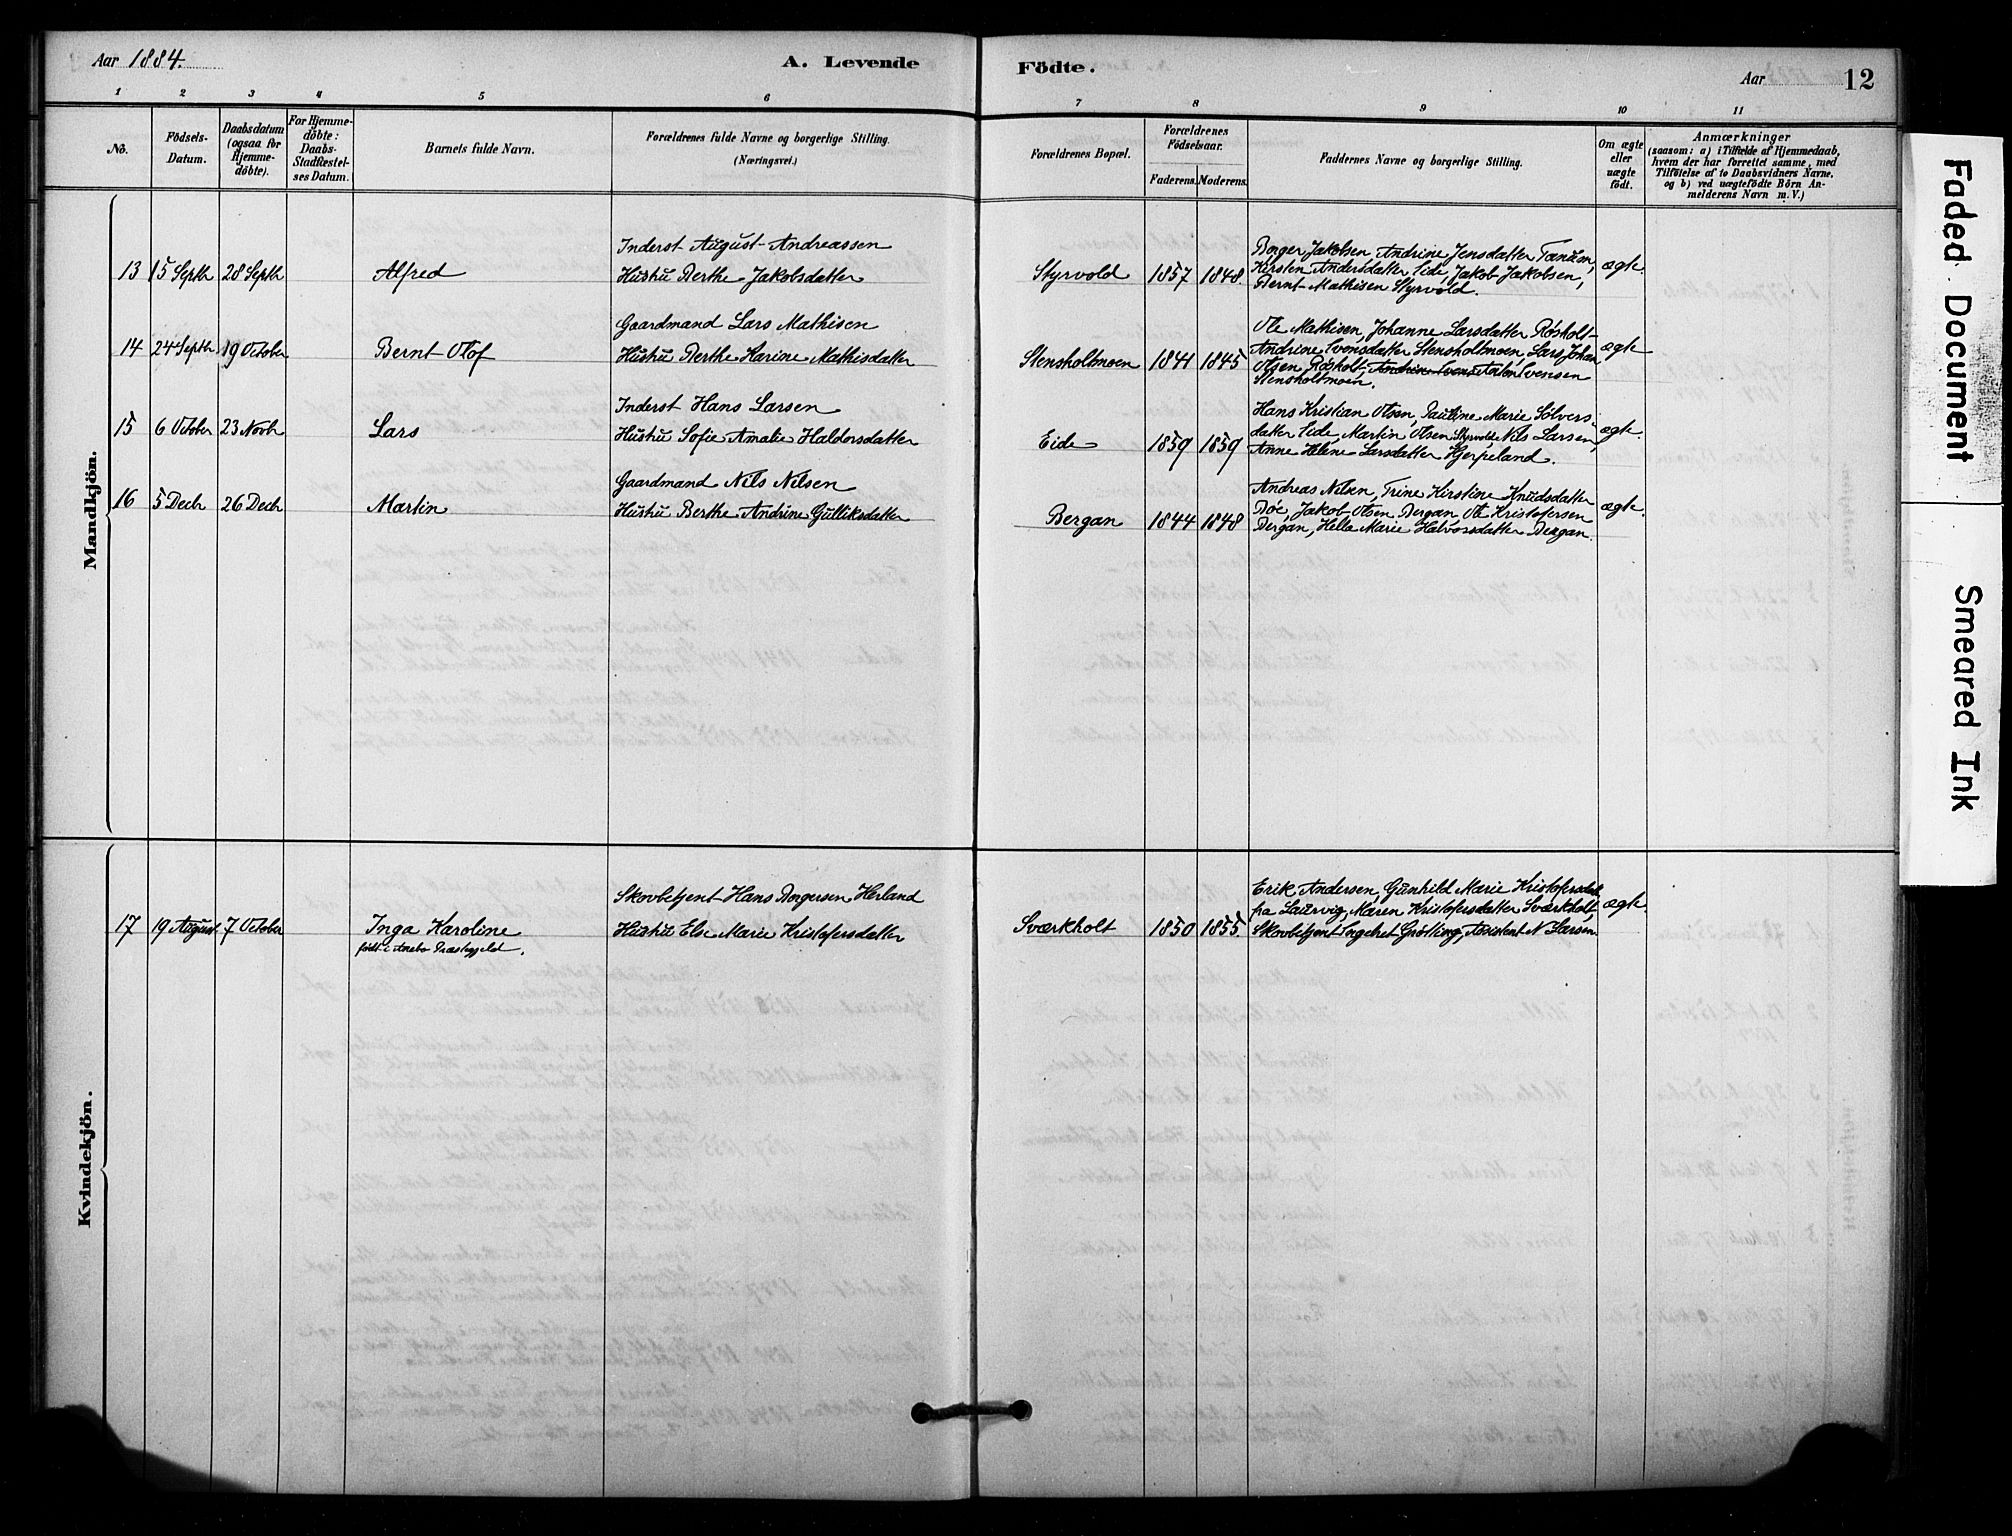 Aar 1884.
A. Levende
Födte.
Aar
12
1 2 3 4 5 6 7 8 9 10 11
No.
Födsels-
Datum.
Daabsdatum
(ogsaa for
Hjemme-
döbte).
For Hjemme-
döbte:
Daabs-
Stadfæstel-
ses Datum.
Barnets fulde Navn.
Forældrenes fulde Navne og borgerlige Stilling.
(Næringsvei.)
Forældrenes Bopæl.
Forældrenes
Födselsaar.
Faderens. Moderens.
Faddernes Navne og borgerlige Stilling.
Om ægte
eller
uægte
födt.
Anmærkninger
(saasom: a) i Tilfælde af Hjemmedaab,
hvem der har forrettet samme, med
Tilföielse af to Daabsvidners Navne.
og b) ved uægtefödte Börn An-
melderens Navn m. V.)
Mandkjön.
13 15 Septbr 28 Septbr Alfred
Inderst August Andreassen
Hustru Berthe Jakobsdatter
Styrvold 1857 1848.
Borger Jakobsen, Andrine Jensdatter Tanum,
Kirsten Andersdatter Eide, Jakob Jakobsen,
Bernt Mathisen Styrvold.
ægte.
14 24 Septbr 19 October Bernt Olof
Gaardmand Lars Mathisen
Hustru Berthe Karine Mathisdatter
Stensholtmoen 1841 1845
Ole Mathisen, Johanne Larsdatter Røsholt
Andrine Evensdatter Stensholtmoen, Lars Johan
Olsen Røsholt, Anton Evensen
Stensholtmoen.
ægte
15 6 October 23 Novbr Lars
Inderst Hans Larsen
Hustru Sofie Amalie Haldorsdatter
Eide 1859 1859
Hans Kristian Olsen, Pauline Marie Sølvers-
datter Eide, Martin Olsen Styrvold, Nils Larsen,
Anne Helene Larsdatter Hjerpeland.
ægte.
16 5 Decbr 26 Decbr Martin
Gaardmand Nils Nilsen
Hustru Berthe Andrine Gulliksdatter
Bergan 1844 1848
Andreas Nilsen, Trine Kirstine Knudsdatter
Bøe, Jakob Olsen Bergan, Ole Kristofersen
Bergan, Helle Marie Halvorsdatter Bergan.
ægte.
Kvindekjön.
17 19 August 7 October Inga Karoline
født i Anebo Præstegjeld.
Skovbetjent Hans Borgersen Herland
Hustru Else Marie Kristofersdatter
Sværkholt 1850 1855.
Erik Andersen, Gunhild Marie Kristofersdatt.
fra Laurvig, Maren Kristofersdatter Sværkholt,
Skovbetjent Ingebret Grøtting, Assistent N Larsen.
ægte.
Faded Document
Smeared Ink